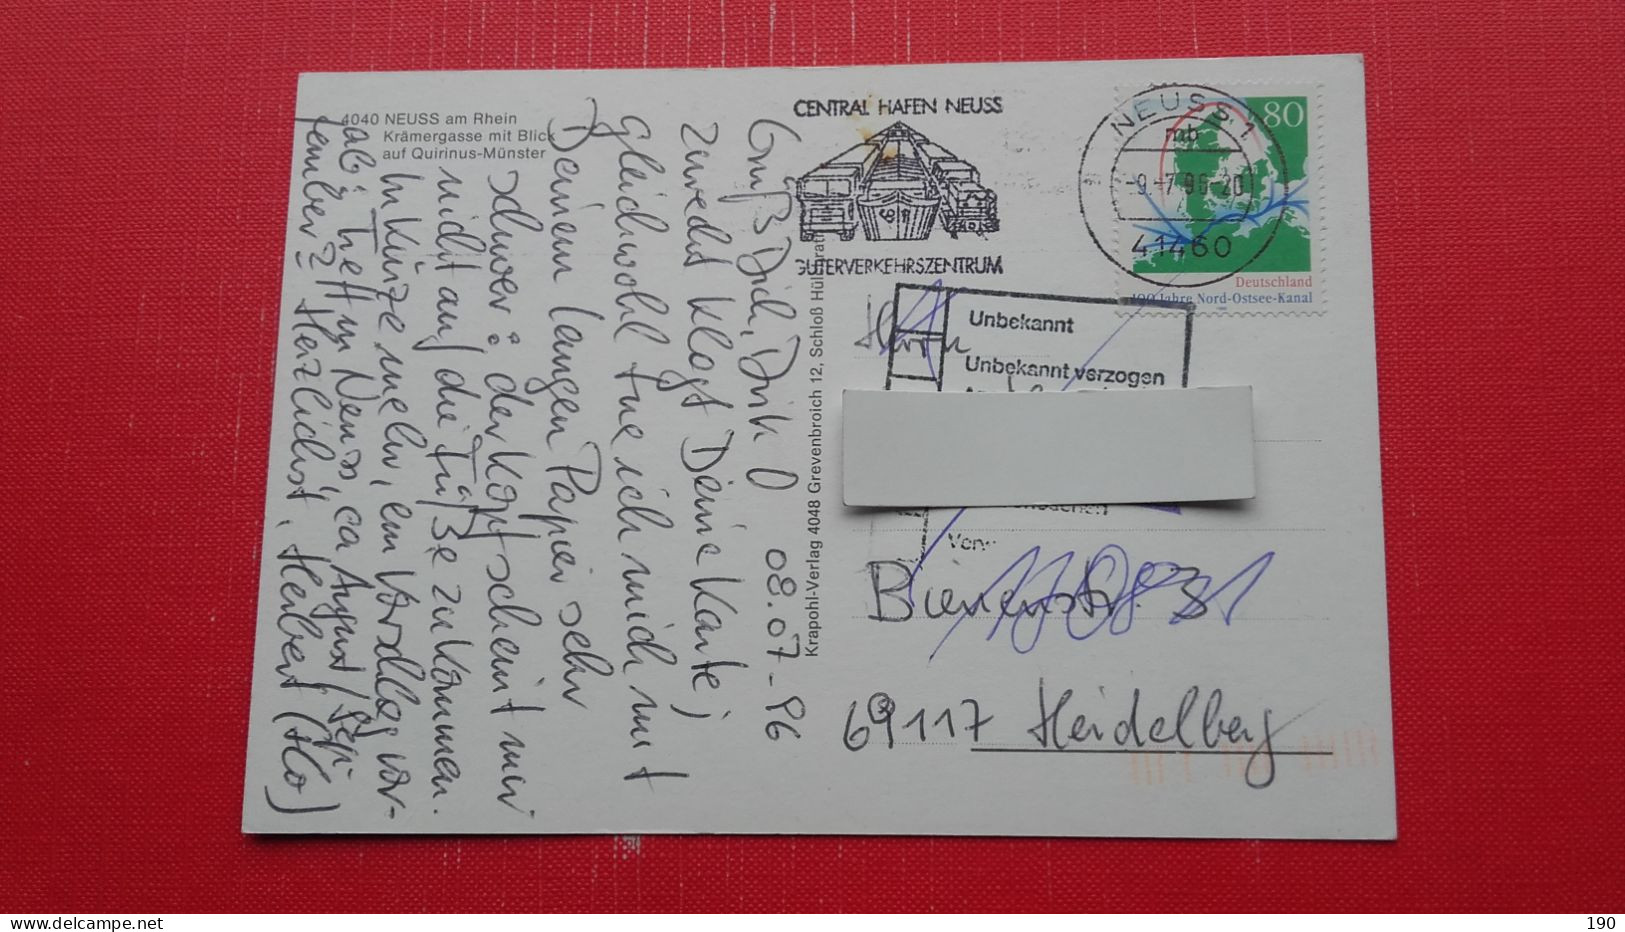 4040 NEUSS am Rhein
Krämergasse mit Blick
auf Quirinus-Münster
08.07-96
Gruß Dich, Dirk!
zuvedst klagt Deine Karte;
gleichwohl tue ich mich mit
Deinem langen Papier sehr
schwer: der Kopf scheint mir
nicht auf die Füße zu kommen.
In Kürze mehr, ein Vorschlag vor-
ab: Treff in Neuss, ca August/Sep-
tember? Herzlichst. Herbert (Ho)
Krapohl-Verlag 4048 Grevenbroich 12, Schloß Hülchrath
CENTRAL HAFEN NEUSS
GÜTERVERKEHRSZENTRUM
NEUSS 1
mb
-9.-7.96-20
41460
80
Deutschland
100 Jahre Nord-Ostsee-Kanal
Herrn
Unbekannt
Unbekannt verzogen
Bienenstr. 3
69117 Heidelberg
190